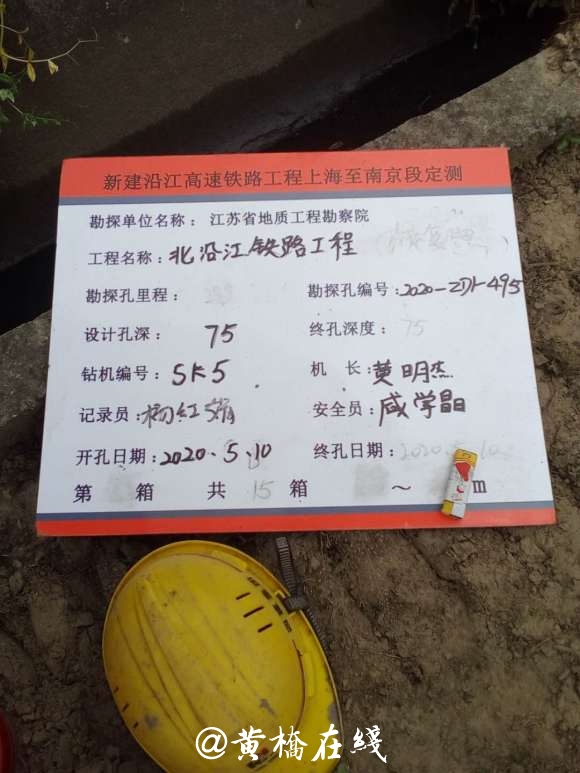 新建沿江高速铁路工程上海至南京段定测
勘探单位名称: 江苏省地质工程勘察院
工程名称: 北沿江铁路工程
勘探孔里程: 勘探孔编号: 2020-ZD1-495
设计孔深: 75 终孔深度: 75
钻机编号: SK5 机 长: 黄明杰
记录员: 杨红娟 安全员: 咸学晶
开孔日期: 2020.5.10 终孔日期: 2020.5.10
第 箱 共 15 箱 ~ m
@黄橋在綫